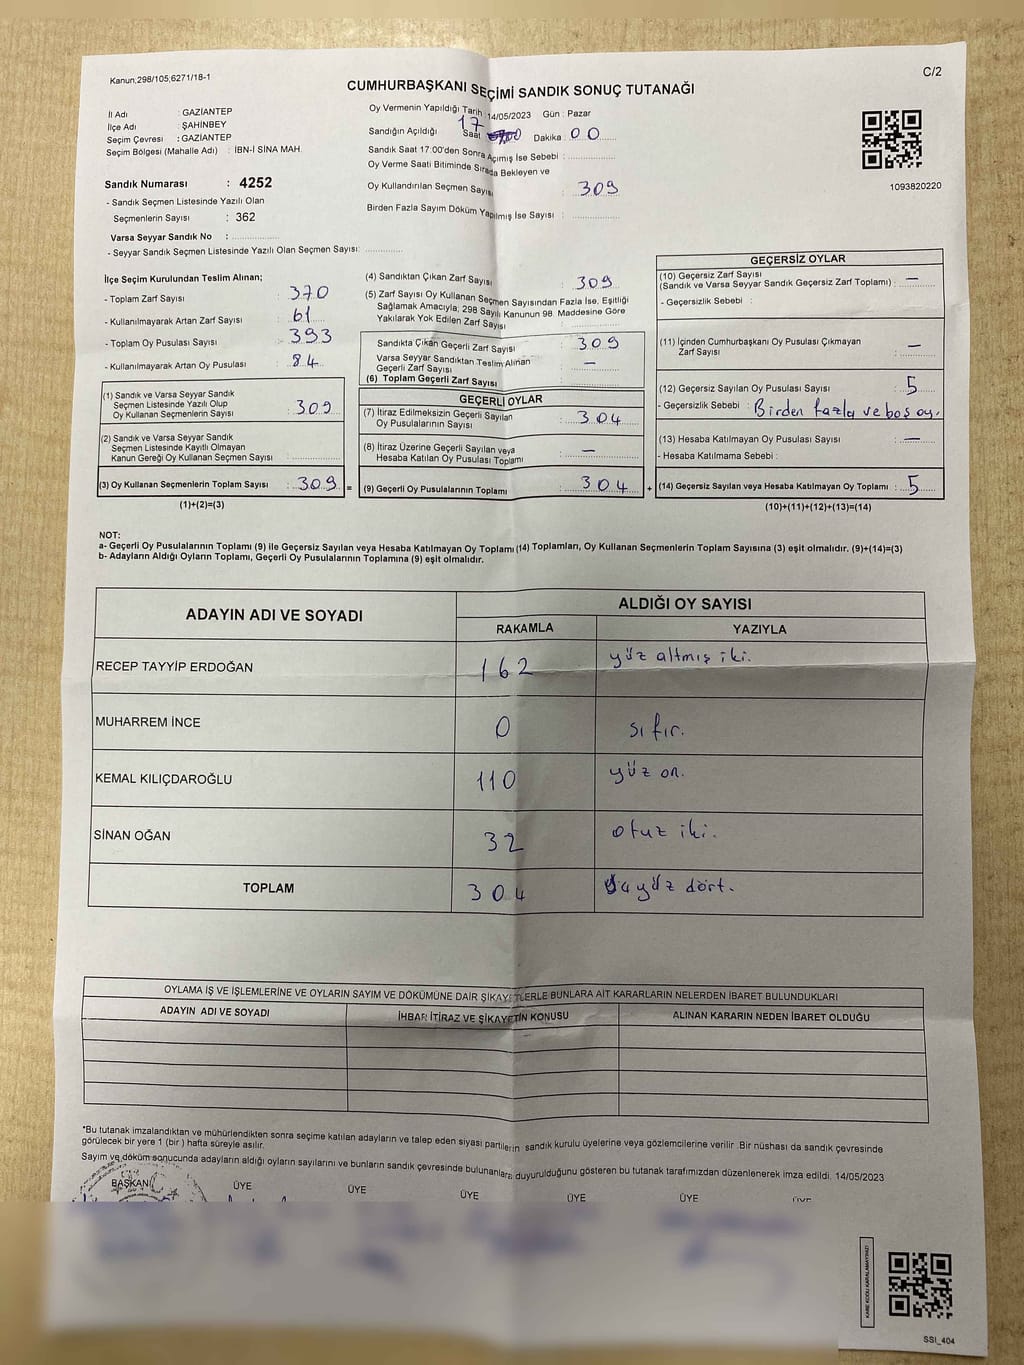 Kanun;298/105;6271/18-1
C/2
CUMHURBAŞKANI SEÇİMİ SANDIK SONUÇ TUTANAĞI
İl Adı : GAZİANTEP
İlçe Adı : ŞAHİNBEY
Seçim Çevresi : GAZİANTEP
Seçim Bölgesi (Mahalle Adı) : İBN-İ SİNA MAH.
Sandık Numarası : 4252
- Sandık Seçmen Listesinde Yazılı Olan
Seçmenlerin Sayısı : 362
Varsa Seyyar Sandık No :
- Seyyar Sandık Seçmen Listesinde Yazılı Olan Seçmen Sayısı:
Oy Vermenin Yapıldığı Tarih 14/05/2023 Gün : Pazar
Sandığın Açıldığı Saat 17 Dakika : 00
Sandık Saat 17:00'den Sonra Açımış İse Sebebi :
Oy Verme Saati Bitiminde Sırada Bekleyen ve
Oy Kullandırılan Seçmen Sayısı : 309
Birden Fazla Sayım Döküm Yapılmış İse Sayısı :
1093820220
İlçe Seçim Kurulundan Teslim Alınan;
- Toplam Zarf Sayısı : 370
- Kullanılmayarak Artan Zarf Sayısı : 61
- Toplam Oy Pusulası Sayısı : 393
- Kullanılmayarak Artan Oy Pusulası : 84
(1) Sandık ve Varsa Seyyar Sandık
Seçmen Listesinde Yazılı Olup
Oy Kullanan Seçmenlerin Sayısı : 309
(2) Sandık ve Varsa Seyyar Sandık
Seçmen Listesinde Kayıtlı Olmayan
Kanun Gereği Oy Kullanan Seçmen Sayısı :
(3) Oy Kullanan Seçmenlerin Toplam Sayısı : 309 =
(1)+(2)=(3)
(4) Sandıktan Çıkan Zarf Sayısı : 309
(5) Zarf Sayısı Oy Kullanan Seçmen Sayısından Fazla İse, Eşitliği
Sağlamak Amacıyla; 298 Sayılı Kanunun 98. Maddesine Göre
Yakılarak Yok Edilen Zarf Sayısı :
Sandıkta Çıkan Geçerli Zarf Sayısı : 309
Varsa Seyyar Sandıktan Teslim Alınan
Geçerli Zarf Sayısı : —
(6) Toplam Geçerli Zarf Sayısı
GEÇERLİ OYLAR
(7) İtiraz Edilmeksizin Geçerli Sayılan
Oy Pusulalarının Sayısı : 304
(8) İtiraz Üzerine Geçerli Sayılan veya
Hesaba Katılan Oy Pusulası Toplamı : —
(9) Geçerli Oy Pusulalarının Toplamı : 304 +
GEÇERSİZ OYLAR
(10) Geçersiz Zarf Sayısı
(Sandık ve Varsa Seyyar Sandık Geçersiz Zarf Toplamı) : —
- Geçersizlik Sebebi :
(11) İçinden Cumhurbaşkanı Oy Pusulası Çıkmayan
Zarf Sayısı : —
(12) Geçersiz Sayılan Oy Pusulası Sayısı : 5
- Geçersizlik Sebebi : Birden fazla ve boş oy.
(13) Hesaba Katılmayan Oy Pusulası Sayısı : —
- Hesaba Katılmama Sebebi :
(14) Geçersiz Sayılan veya Hesaba Katılmayan Oy Toplamı : 5
(10)+(11)+(12)+(13)=(14)
NOT:
a- Geçerli Oy Pusulalarının Toplamı (9) ile Geçersiz Sayılan veya Hesaba Katılmayan Oy Toplamı (14) Toplamları, Oy Kullanan Seçmenlerin Toplam Sayısına (3) eşit olmalıdır. (9)+(14)=(3)
b- Adayların Aldığı Oyların Toplamı, Geçerli Oy Pusulalarının Toplamına (9) eşit olmalıdır.
ADAYIN ADI VE SOYADI
ALDIĞI OY SAYISI
RAKAMLA YAZIYLA
RECEP TAYYİP ERDOĞAN 162 yüz altmış iki.
MUHARREM İNCE 0 sıfır.
KEMAL KILIÇDAROĞLU 110 yüz on.
SİNAN OĞAN 32 otuz iki.
TOPLAM 304 yüz dört.
OYLAMA İŞ VE İŞLEMLERİNE VE OYLARIN SAYIM VE DÖKÜMÜNE DAİR ŞİKAYETLERLE BUNLARA AİT KARARLARIN NELERDEN İBARET BULUNDUKLARI
ADAYIN ADI VE SOYADI İHBAR, İTİRAZ VE ŞİKAYETİN KONUSU ALINAN KARARIN NEDEN İBARET OLDUĞU
*Bu tutanak imzalandıktan ve mühürlendikten sonra seçime katılan adayların ve talep eden siyasi partilerin sandık kurulu üyelerine veya gözlemcilerine verilir .Bir nüshası da sandık çevresinde
görülecek bir yere 1 (bir ) hafta süreyle asılır.
Sayım ve döküm sonucunda adayların aldığı oyların sayılarını ve bunların sandık çevresinde bulunanlara duyurulduğunu gösteren bu tutanak tarafımızdan düzenlenerek imza edildi. 14/05/2023
BAŞKAN ÜYE ÜYE ÜYE ÜYE ÜYE ÜYE
KARE KODU KARALAMAYINIZ!
SSI_404